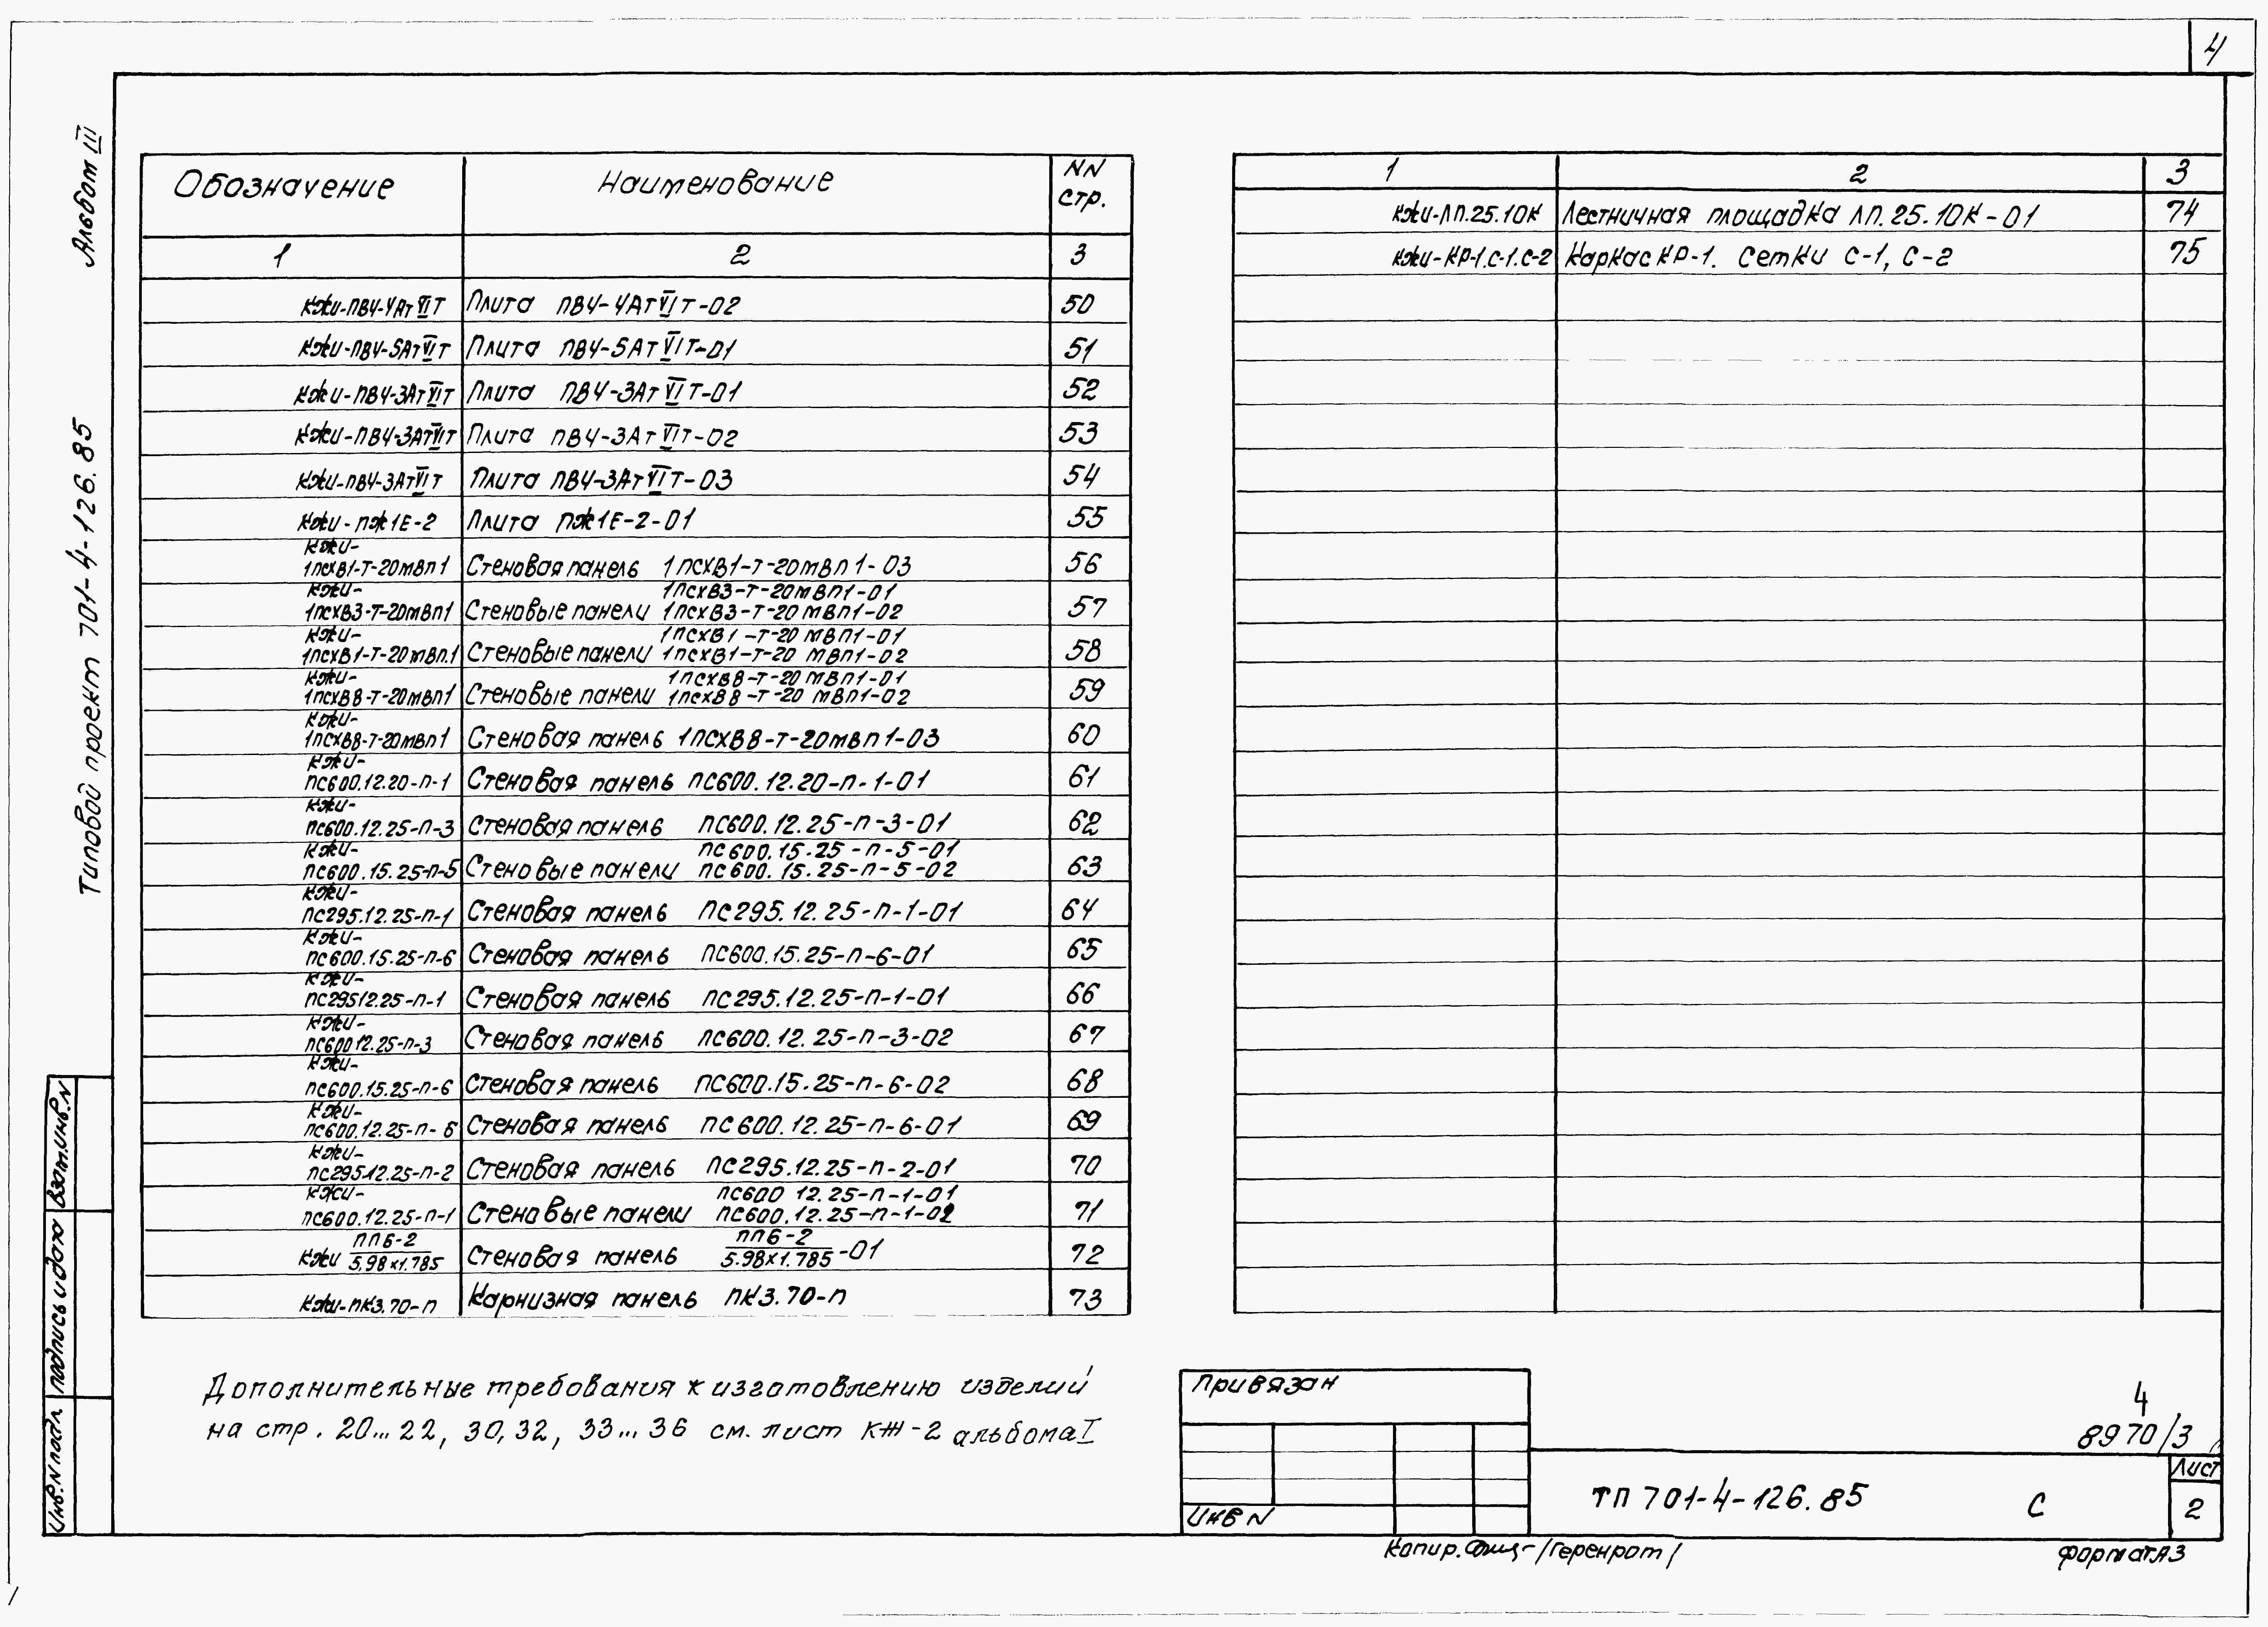 4
Альбом III
Типовой проект 701-4-126.85
Обозначение Наименование NN стр.
1 2 3
КЖИ-ПВЧ-4АтVIТ Плита ПВЧ-4АтVIТ-02 50
КЖИ-ПВЧ-5АтVIТ Плита ПВЧ-5АтVIТ-01 51
КЖИ-ПВЧ-3АтVIТ Плита ПВЧ-3АтVIТ-01 52
КЖИ-ПВЧ-3АтVIТ Плита ПВЧ-3АтVIТ-02 53
КЖИ-ПВЧ-3АтVIТ Плита ПВЧ-3АтVIТ-03 54
КЖИ-ПЖ1Е-2 Плита ПЖ1Е-2-01 55
КЖИ-
1ПСХВ1-Т-20МВП1 Стеновая панель 1ПСХВ1-Т-20МВП1-03 56
КЖИ- 1ПСХВ3-Т-20МВП1-01
1ПСХВ3-Т-20МВП1 Стеновые панели 1ПСХВ3-Т-20МВП1-02 57
КЖИ- 1ПСХВ1-Т-20 МВП1-01
1ПСХВ1-Т-20МВП.1 Стеновые панели 1ПСХВ1-Т-20 МВП1-02 58
КЖИ- 1ПСХВ8-Т-20 МВП1-01
1ПСХВ8-Т-20МВП1 Стеновые панели 1ПСХВ8-Т-20 МВП1-02 59
КЖИ-
1ПСХВ8-Т-20МВП1 Стеновая панель 1ПСХВ8-Т-20МВП1-03 60
КЖИ-
ПС600.12.20-П-1 Стеновая панель ПС600.12.20-П-1-01 61
КЖИ-
ПС600.12.25-П-3 Стеновая панель ПС600.12.25-П-3-01 62
КЖИ- ПС600.15.25-П-5-01
ПС600.15.25-П-5 Стеновые панели ПС600.15.25-П-5-02 63
КЖИ-
ПС295.12.25-П-1 Стеновая панель ПС295.12.25-П-1-01 64
КЖИ-
ПС600.15.25-П-6 Стеновая панель ПС600.15.25-П-6-01 65
КЖИ-
ПС29512.25-П-1 Стеновая панель ПС295.12.25-П-1-01 66
КЖИ-
ПС600 12.25-П-3 Стеновая панель ПС600.12.25-П-3-02 67
КЖИ-
ПС600.15.25-П-6 Стеновая панель ПС600.15.25-П-6-02 68
КЖИ-
ПС600.12.25-П-6 Стеновая панель ПС600.12.25-П-6-01 69
КЖИ-
ПС295.12.25-П-2 Стеновая панель ПС295.12.25-П-2-01 70
КЖИ- ПС600 12.25-П-1-01
ПС600.12.25-П-1 Стеновые панели ПС600.12.25-П-1-02 71
КЖИ ПП6-2/5,98×1.785 Стеновая панель ПП6-2/5.98×1.785-01 72
КЖИ-ПК3.70-П Карнизная панель ПК3.70-П 73
1 2 3
КЖИ-ЛП.25.10К Лестничная площадка ЛП.25.10К-01 74
КЖИ-КР-1.С-1.С-2 Каркас КР-1. Сетки С-1, С-2 75
Дополнительные требования к изготовлению изделий
на стр. 20...22, 30,32, 33...36 см. лист КЖ-2 альбома I
Привязан
Инв N
4
8970/3
ТП 701-4-126.85 С
Лист
2
Копир. /Геренрот/
Формат А3
Взам.инв.N
Подпись и дата
Инв.N подл.